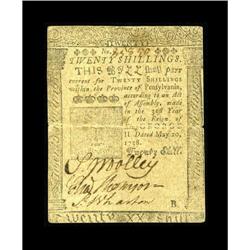 TWENTY
No.
TWENTY SHILLINGS.
THIS BILL shall pass
current for TWENTY SHILLINGS
within the Province of Pensylvania,
according to an Act
of Assembly, made
in the 31st Year
of the Reign of
GEORGE
II Dated May 20,
1758.
Twenty Shill.
S Wooley
S Wharton
B
Twenty XX Shill